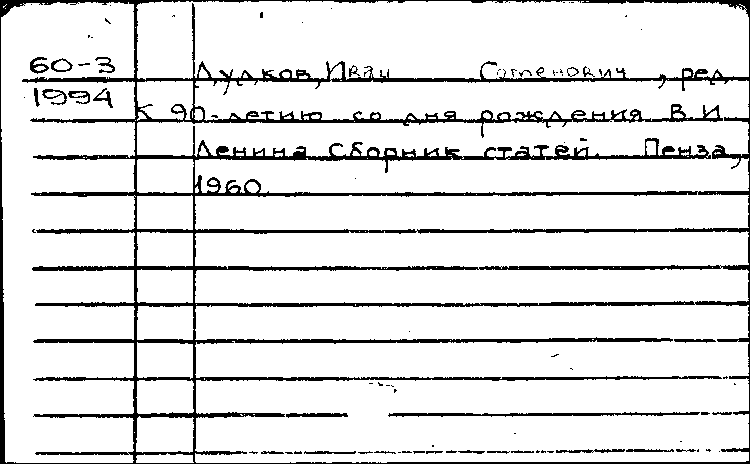 60-3 Дудков, Иван Семенович, ред.
1994 К 90-летию со дня рождения В. И.
Ленина Сборник статей. Пенза,
1960.